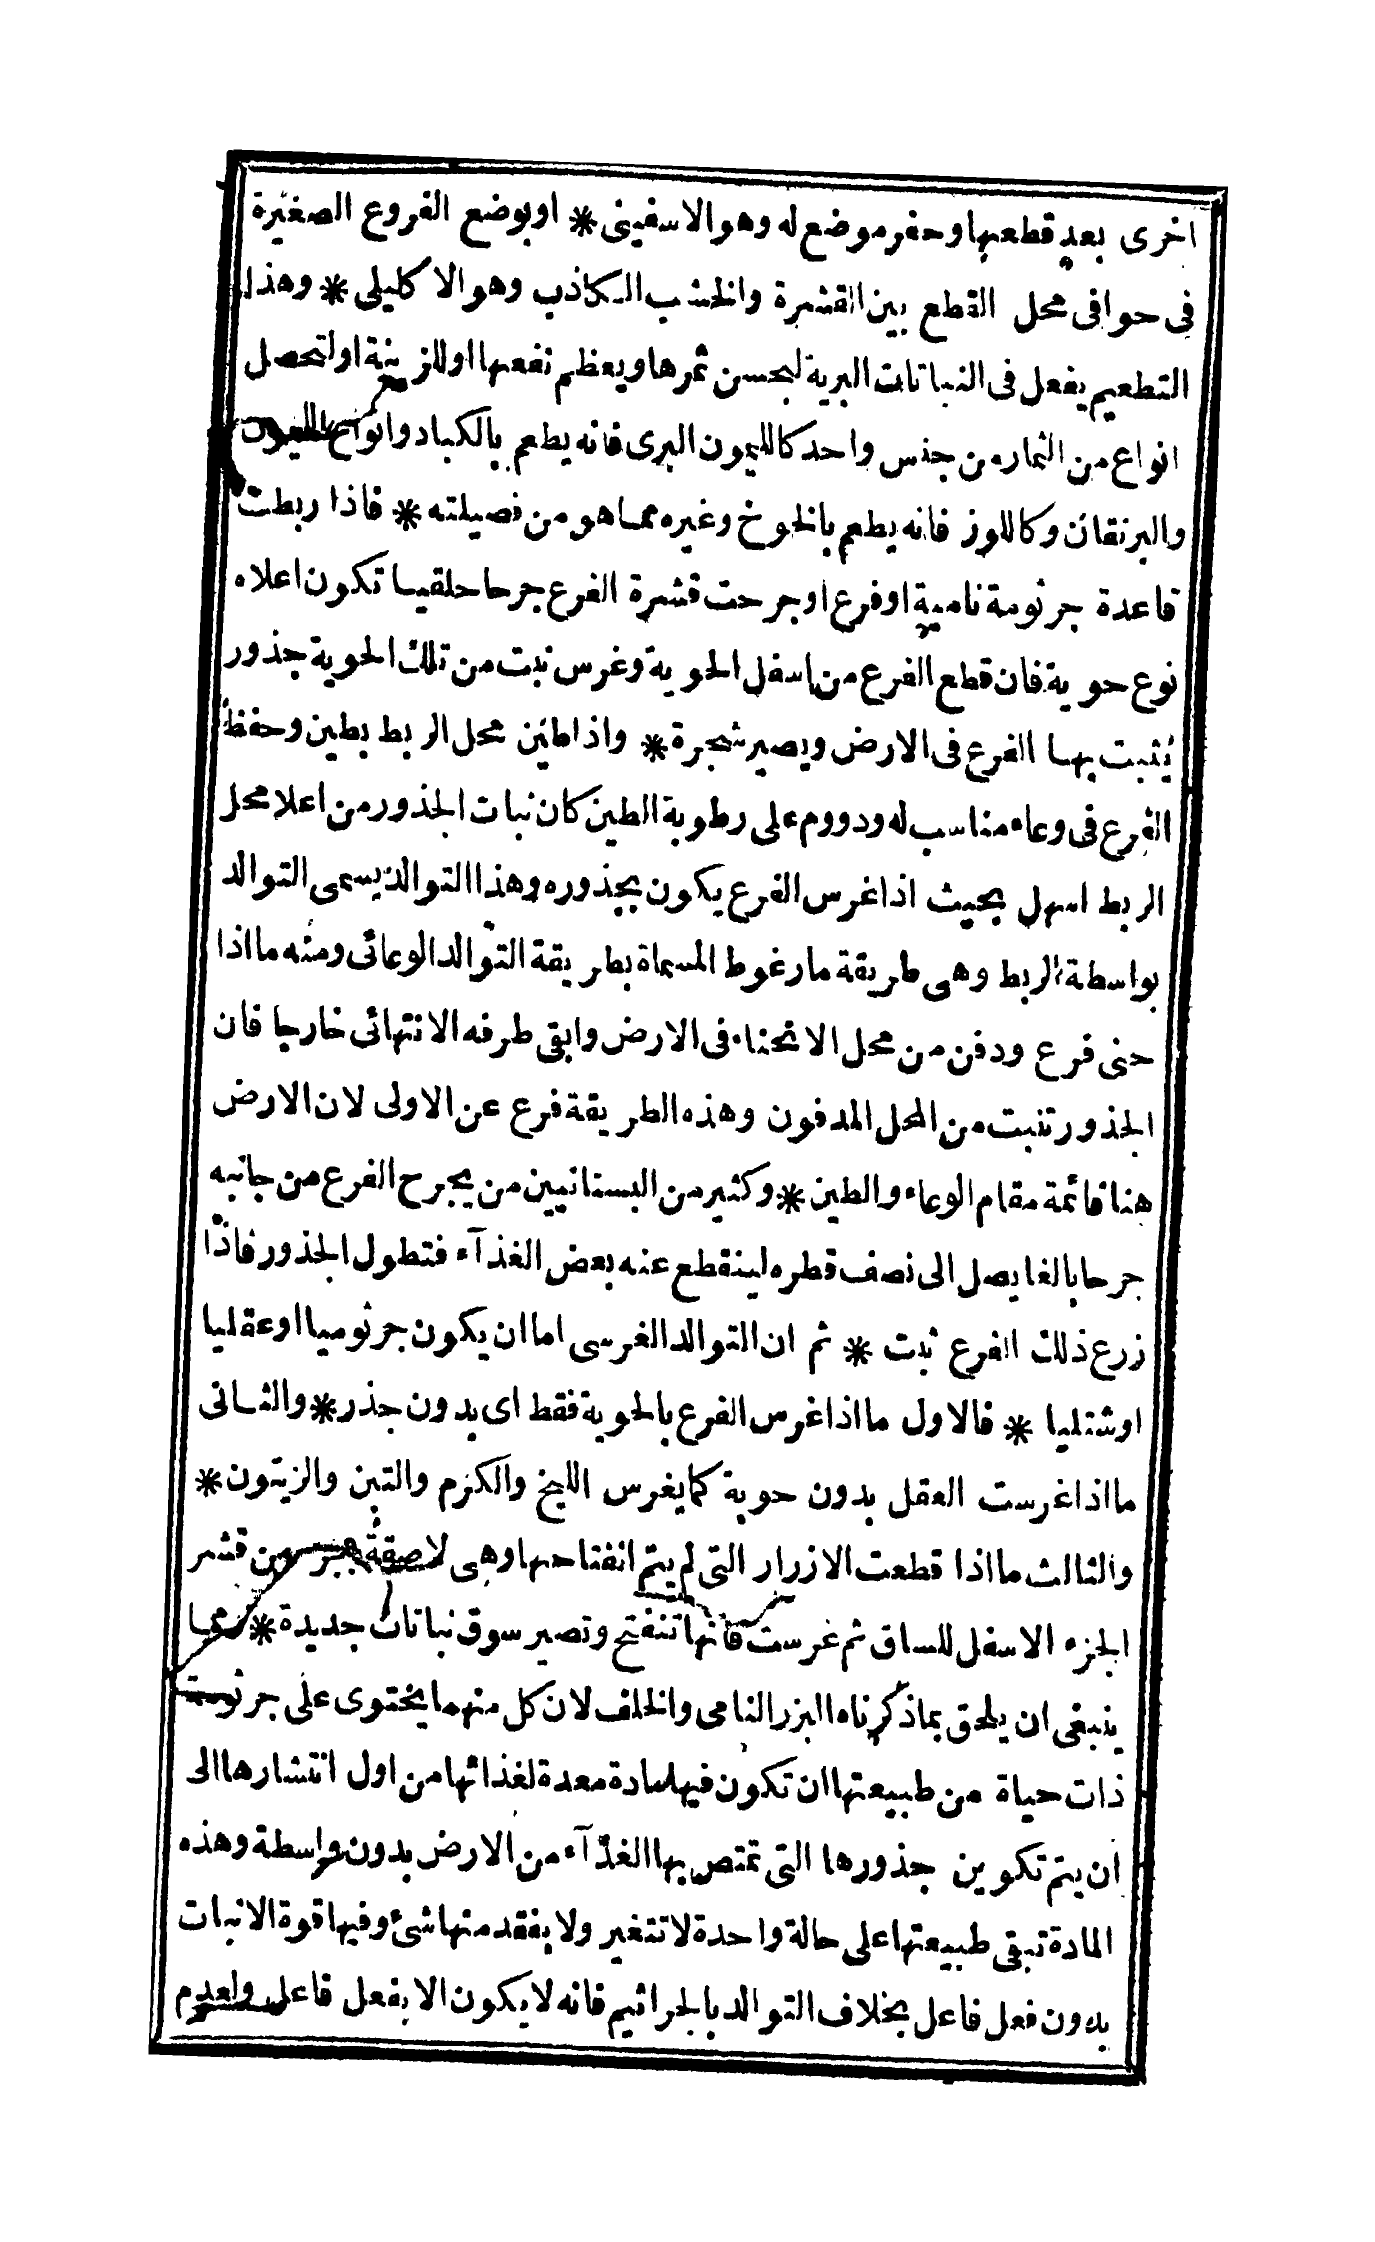 اخرى بعد قطعها وحفر موضع له وهو الاسفينى * او بوضع الفروع الصغيرة
فى حوافى محل القطع بين القشرة والخشب الكاذب وهو الاكليلى * وهذا
التطعيم يفعل فى النباتات البرية لتحسن ثمرها ويعظم نفعها او للزينة او لتحصل
انواع من الثمار من جنس واحد كالليمون البرى فانه يطعم بالكباد وانواع الليمون
والبرتقان وكاللوز فانه يطعم بالخوخ وغيره مما هو من فصيلته * فاذا ربطت
قاعدة جرثومة نامية او فرع او جرحت قشرة الفرع جرحا حلقيا تكون اعلاه
نوع حوية فان قطع الفرع من اسفل الحوية وغرس نبت من تلك الحوية جذور
يثبت بها الفرع فى الارض ويصير شجرة * واذا طين محل الربط بطين وحفظ
الفرع فى وعاء مناسب له ودووم على رطوبة الطين كان نبات الجذور من اعلا محل
الربط اسهل بحيث اذا غرس الفرع يكون بجذوره وهذا التوالد يسمى التوالد
بواسطة الربط وهى طريقة مارغوط المسماة بطريقة التوالد الوعائى ومنه ما اذا
حنى فرع ودفن من محل الانحناء فى الارض وابقى طرفه الانتهائى خارجا فان
الجذور تنبت من المحل المدفون وهذه الطريقة فرع عن الاولى لان الارض
هنا قائمة مقام الوعاء والطين * وكثير من البستانيين من يجرح الفرع من جانبه
جرحا بالغا يصل الى نصف قطره لينقطع عنه بعض الغذآء فتطول الجذور فاذا
زرع ذلك الفرع نبت * ثم ان التوالد الغرسى اما ان يكون جرثوميا او عقليا
او شتليا * فالاول ما اذا غرس الفرع بالحوية فقط اى بدون جذر * والثانى
ما اذا غرست العقل بدون حوية كما يغرس اللبخ والكرم والتين والزيتون *
والثالث ما اذا قطعت الازرار التى لم يتم انفتاحها وهى لاصقة بجزء من قشر
الجزء الاسفل للساق ثم غرست فانها تنفتح وتصير سوق نباتات جديدة * ومما
ينبغى ان يلحق بما ذكرناه البزر النامى والخلف لان كل منهما يحتوى على جرثومة
ذات حياة من طبيعتها ان تكون فيها مادة معدة لغذائها من اول انتشارها الى
ان يتم تكوين جذورها التى تمتص بها الغذآء من الارض بدون واسطة وهذه
المادة تبقى طبيعتها على حالة واحدة لا تتغير ولا يفقد منها شئ وفيها قوة الانبات
بدون فعل فاعل بخلاف التوالد بالجراثيم فانه لا يكون الا بفعل فاعل ولعدم